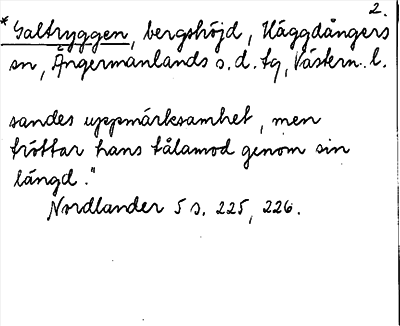 2.
*Galtryggen, bergshöjd, Häggdångers
sn, Ångermanlands s. d. tg, Västern. l.
sandes uppmärksamhet, men
tröttar hans tålamod genom sin
längd."
Nordlander 5 s. 225, 226.